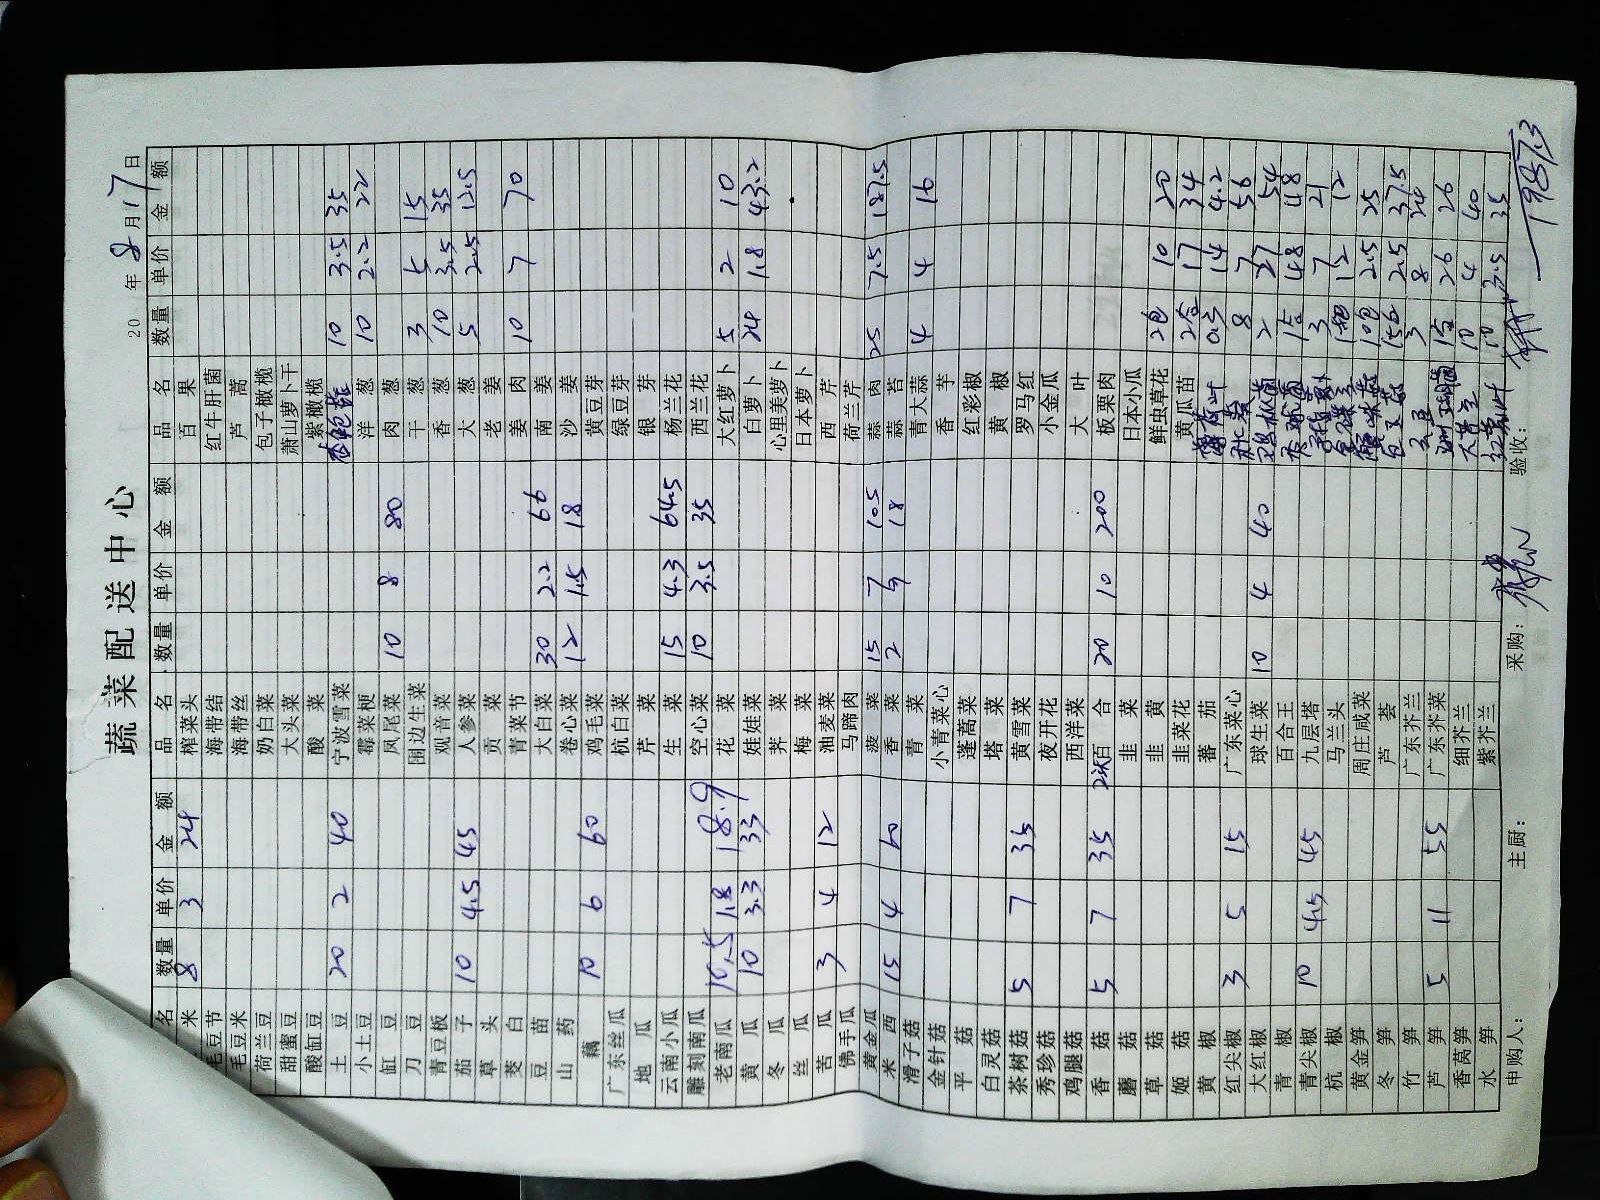 蔬菜配送中心
20 年 8 月 17 日
名 数量 单价 金额 品名 数量 单价 金额 品名 数量 单价 金额
米 8 3 24 榨菜头 百果
毛豆节 海带结 红牛肝菌
毛豆米 海带丝 芦蒿
荷兰豆 奶白菜 包子橄榄
甜蜜豆 大头菜 萧山萝卜干
酸缸豆 酸菜 紫橄榄
土豆 20 2 40 宁波雪菜 杏鲍菇 10 3.5 35
小土豆 霉菜梗 洋葱 10 2.2 22
缸豆 凤尾菜 10 8 80 肉葱
刀豆 围边生菜 干葱 3 5 15
青豆板 观音菜 香葱 10 3.5 35
茄子 10 4.5 45 人参菜 大葱 5 2.5 12.5
草头 贡菜 老姜
茭白 青菜节 姜肉 10 7 70
豆苗 大白菜 30 2.2 66 南姜
山药 卷心菜 12 1.5 18 沙姜
藕 10 6 60 鸡毛菜 黄豆芽
广东丝瓜 杭白菜 绿豆芽
地瓜 芹菜 银芽
云南小瓜 生菜 15 4.3 64.5 杨兰花
雕刻南瓜 空心菜 10 3.5 35 西兰花
老南瓜 10.5 1.8 18.9 花菜 大红萝卜 5 2 10
黄瓜 10 3.3 33 娃娃菜 白萝卜 24 1.8 43.2
冬瓜 荠菜 心里美萝卜
丝瓜 梅菜 日本萝卜
苦瓜 3 4 12 油麦菜 西芹
佛手瓜 马蹄肉 荷兰芹
黄金瓜 菠菜 15 7 105 蒜肉 25 7.5 187.5
米西 15 4 60 香菜 2 9 18 蒜苔
滑子菇 青菜 青大蒜 4 4 16
金针菇 小青菜心 香芋
平菇 蓬蒿菜 红彩椒
白灵菇 塔菜 黄椒
茶树菇 5 7 35 黄雪菜 罗马红
秀珍菇 夜开花 小金瓜
鸡腿菇 西洋菜 大叶
香菇 5 7 35 百合 20 10 200 板栗肉
蘑菇 韭菜 日本小瓜
草菇 韭黄 鲜虫草花 2包 10 20
姬菇 韭菜花 黄瓜苗 2盒 17 34
黄椒 蕃茄 薄荷叶 0.3 14 4.2
红尖椒 3 5 15 广东菜心 秋葵 8 7 56
大红椒 球生菜 10 4 40 鸡枞菌 2 27 54
青椒 百合王 1盒 48 48
青尖椒 10 4.5 45 九层塔 3 7 21
杭椒 马兰头 1包 12 12
黄金笋 周庄咸菜 10包 2.5 25
冬笋 芦荟 15包 2.5 37.5
竹笋 广东芥兰 3 8 24
芦笋 5 11 55 广东芥菜 1盒 26 26
香莴笋 细芥兰 10 4 40
水笋 紫芥兰 10 3.5 35
申购人: 主厨: 采购: 验收: 1987.3